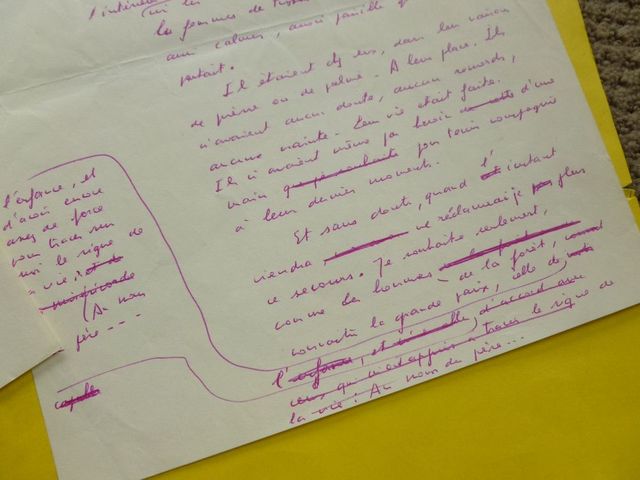 les femmes de
aux calmes, aussi paisible
partait.
Ils étaient chez eux, dans leur maison
de pierre ou de palme. A leur place. Ils
n'avaient aucun doute, aucun remords,
aucune crainte. Leur vie était faite.
Ils n'avaient même pas besoin d'une
main pour tenir compagnie
à leur dernier moment.
Et sans doute, quand l'instant
viendra, ne réclamerai-je plus
ce secours. Je souhaite seulement,
comme les hommes de la forêt,
connaître la grande paix, celle de
l'enfance, et d'accord avec
ceux qui m'ont appris à tracer le signe de
la vie : Au nom du père...
l'enfance, et
d'avoir encore
assez de force
pour tracer sur
moi le signe de
la vie,
(Au nom
père ---